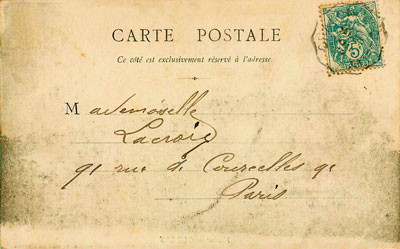 CARTE POSTALE
Ce côté est exclusivement réservé à l'adresse.
Mademoiselle
Lacroix
91 rue de Courcelles 91
Paris
5